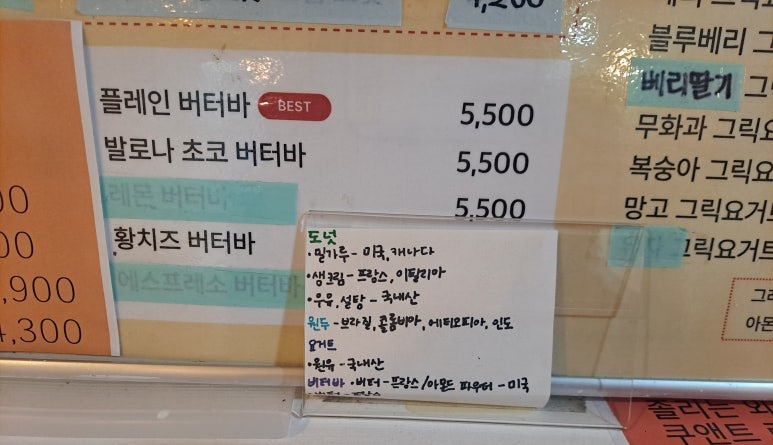 4,200
플레인 버터바 BEST 5,500
발로나 초코 버터바 5,500
레몬 버터바 5,500
황치즈 버터바
에스프레소 버터바
00
00
,900
4,300
블루베리 그
베리딸기 그
무화과 그릭요
복숭아 그릭요
망고 그릭요거트
그릭요거트
그
아몬
도넛
•밀가루 - 미국, 캐나다
•생크림 - 프랑스, 이탈리아
•우유, 설탕 - 국내산
원두 - 브라질, 콜롬비아, 에티오피아, 인도
요거트
•원유 - 국내산
버터바 •버터 - 프랑스/아몬드 파우더 - 미국
쫄라는
쿠앤크